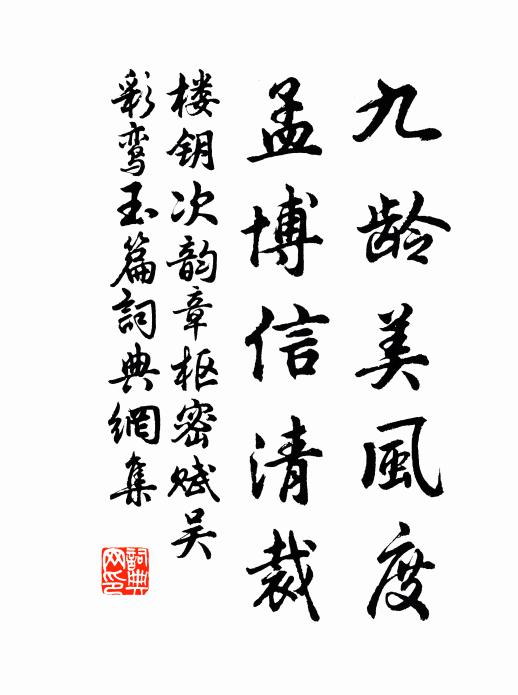 九龄美風度
孟博信清裁
楼钥次韵章枢密赋吴
彩鸾玉篇詞典網集
詞典网印